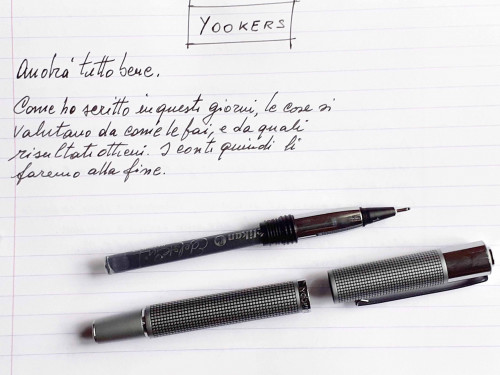 YOOKERS
Andrà tutto bene.
Come ho scritto in questi giorni, le cose si
valutano da come le fai, e da quali
risultati ottieni. I conti quindi li
faremo alla fine.
likan